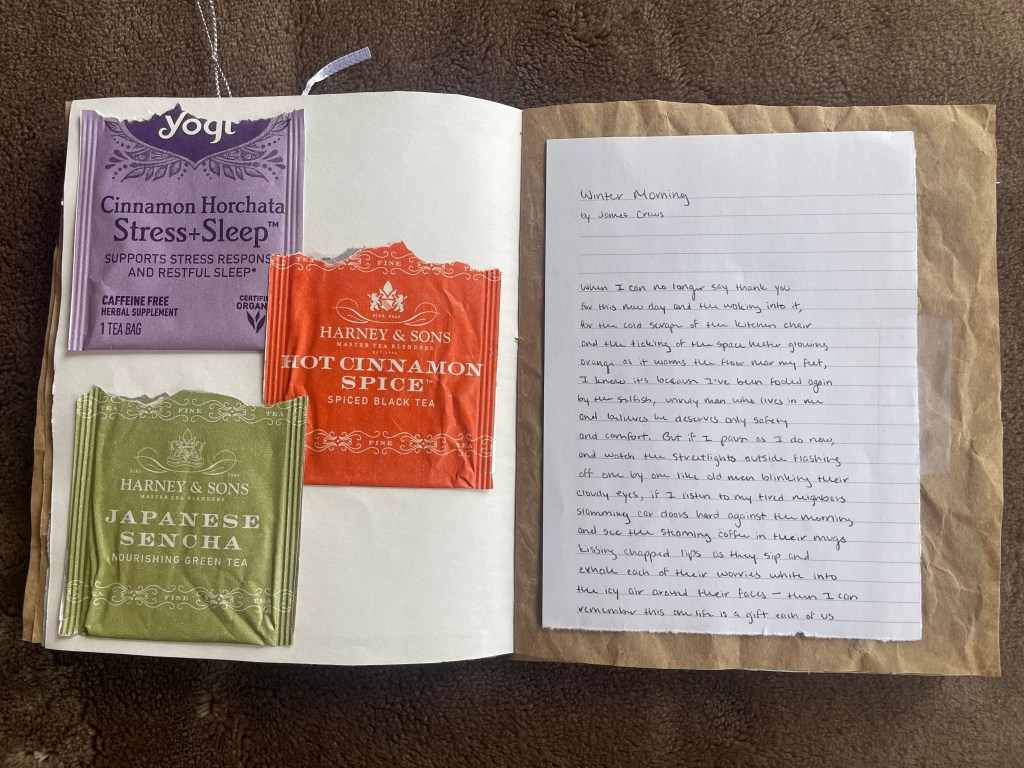 yogi
Cinnamon Horchata
Stress+Sleep™
SUPPORTS STRESS RESPONS
AND RESTFUL SLEEP*
CAFFEINE FREE
HERBAL SUPPLEMENT
1 TEA BAG
CERTIFI
ORGAN
TEA FINE TEA
HARNEY & SONS
MASTER TEA BLENDERS
HOT CINNAMON
SPICE™
SPICED BLACK TEA
FINE TEA
TEA FINE TEA
SINCE 1983
HARNEY & SONS
MASTER TEA BLENDERS
JAPANESE
SENCHA
NOURISHING GREEN TEA
TEA FINE TEA
Winter Morning
by James Crews
When I can no longer say thank you
for this new day and the waking into it,
for the cold scrape of the kitchen chair
and the ticking of the space heater glowing
orange as it warms the floor near my feet,
I know it's because I've been fooled again
by the selfish, unruly man who lives in me
and believes he deserves only safety
and comfort. But if I pause as I do now,
and watch the streetlights outside flashing
off one by one like old men blinking their
cloudy eyes, if I listen to my tired neighbors
slamming car doors hard against the morning
and see the steaming coffee in their mugs
kissing chapped lips as they sip and
exhale each of their worries white into
the icy air around their faces — then I can
remember this one life is a gift each of us